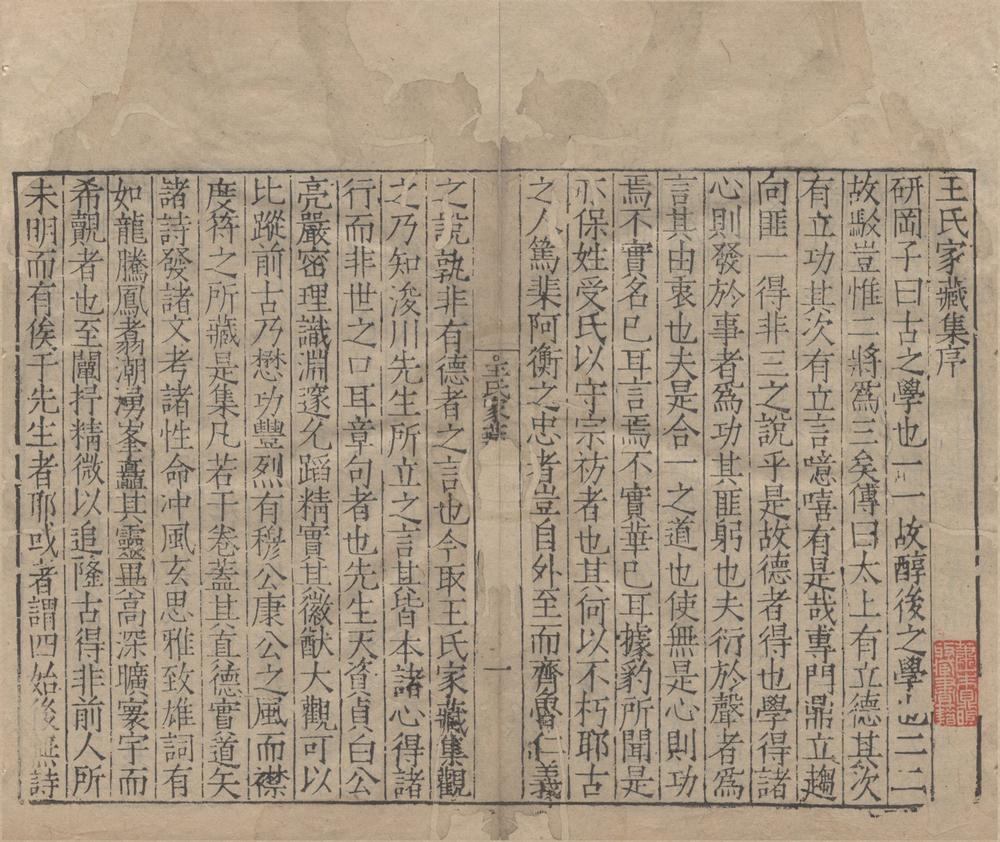 王氏家藏集序
研岡子曰古之學也一一故醇後之學也二二
故駁豈惟二將爲三矣傳曰太上有立德其次
有立功其次有立言噫嘻有是哉專門鼎立趨
向匪一得非三之說乎是故德者得也學得諸
心則發於事者爲功其匪躬也夫衍於聲者爲
言其由衷也夫是合一之道也使無是心則功
焉不實名已耳言焉不實華已耳據豹所聞是
亦保姓受氏以守宗祊者也其何以不朽耶古
之人篤棐阿衡之忠者豈自外至而齊魯仁義
王氏家藏
一
之說孰非有德者之言也今取王氏家藏集觀
之乃知浚川先生所立之言其皆本諸心得諸
行而非世之口耳章句者也先生天資貞白公
亮嚴密理識淵邃允蹈精實其徽猷大觀可以
比蹤前古乃懋功豐烈有穆公康公之風而襟
度符之所藏是集凡若干卷蓋其直德實道矢
諸詩發諸文考諸性命冲風玄思雅致雄詞有
如龍騰鳳翥潮湧峯矗其靈異高深曠寰宇而
希覯者也至闡抒精微以追隆古得非前人所
未明而有俟于先生者耶或者謂四始後無詩